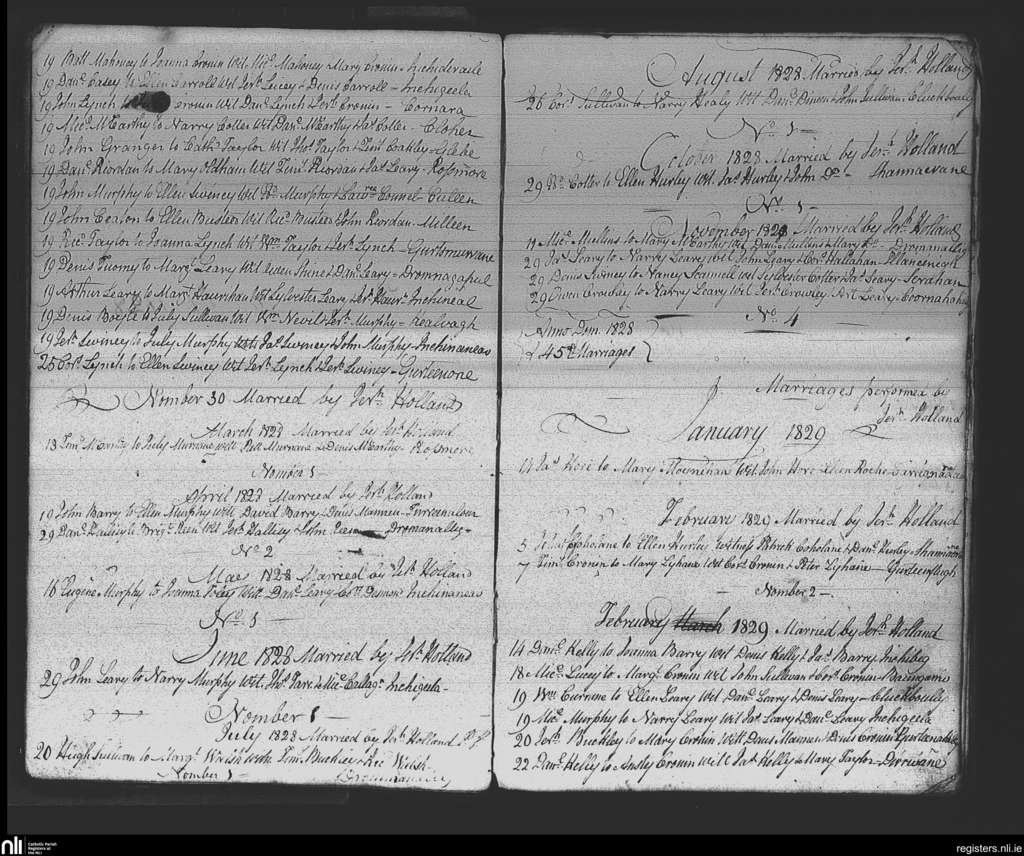 19 Batt Mahoney to Joanna Cronin Wit Mic. Mahoney Mary Cronin - Inchideraile
19 Danl. Casey to Ellen Carroll Wit Jerh. Lucey & Denis Carroll - Inchigeela
19 John Lynch Cronin Wit Danl. Lynch & Jerh. Cronin - Cornara
19 Micl. McCarthy to Narry Cotter Wit Danl. McCarthy & Jas. Cotter - Cloher
19 John Granger to Cathe. Taylor Wit Thos. Taylor & Timy. Coakley - Glebe
19 Danl. Riordan to Mary Wit Timy. Riordan & Jas. Leary - Rossmore
19 John Murphy to Ellen Swiney Wit Murphy & Lawre. Connel - Cullen
19 John Ceason to Ellen Busteed Wit Ric. Busteed & John Riordan - Milleen
19 Ric. Taylor to Joanna Lynch Wit Wm. Taylor & Jerh. Lynch -
19 Denis Twomy to Margt. Leary Wit & Danl. Leary - Dromnagapul
19 Arthur Leary to Margt. Hauruhan Wit Sylvester Leary & Jerh. Inchineal
19 Denis Boyle to July Sullivan Wit Wm. Nevil & Jerh. Murphy - Kealvagh
19 Jerh. Swiney to July Murphy Wit Jas. Swiney & John Murphy - Inchinaneas
25 Cors. Lynch to Ellen Swiney Wit Jerh. Lynch & Jerh. Swiney - Gurteenone
Nomber 30 Married by Jerh. Holland
March 1828 Married by Jerh. Holland
13 Timy. to July Murnane Witt Patt Murnane & Denis McCarthy - Rossmore
Nomber 1
April 1828 Married by Jerh. Holland
19 John Barry to Ellen Murphy Witt David Barry & Denis
29 Danl. to Brigt. Wit Jerh. & John - Dromanallig
No. 2
Mae 1828 Married by Jerh. Holland
16 Eugene Murphy to Joanna Witt Danl. Leary Corns. Desmond Inchinaneas
No. 1
June 1828 Married by Jerh. Holland
29 John Leary to Narry Murphy Witt Thos. & Mic. Callagn. Inchigeela -
Nomber 1 -
July 1828 Married by Jerh. Holland P.P.
20 Hugh Sullivan to Margt. Welsh with Timy. & Ric Welsh -
Nomber 1 -
August 1828 Married by Jerh. Holland
26 Cors. Sullivan to Narry Healy Wit Danl. & John Sullivan -
No. 1 -
October 1828 Married by Jerh. Holland
29 Cotter to Ellen Hurley Wit. Jas. Hurley & John Do. - Shannacrane
No. 1 -
November 1828 Married by Jerh. Holland
11 Micl. Mullins to Mary McCarthy Wit Danl. Mullins & Mary Do. - Dromanallig
29 Jas. Leary to Narry Leary Wit John Leary & Cors. Hallahan
29 Denis Swiney to Nancy Scannell Wit Sylvester Cotter & Jas. Leary -
29 Owen Crowley to Narry Leary Wit Jerh. Crowley Art Leary - Coornahahy
No. 4
Anno Dom. 1828
45 Marriages
Marriages performed by
Jerh. Holland
January 1829
17 Jas. Hore to Mary Moynehan Wit John Hore Ellen Roche
February 1829 Married by Jerh. Holland
5 Coholane to Ellen Hurley Witness Patrick Coholane & Danl. Hurley
7 Timy. Cronin to Mary Lyhane Wit Cors. Cronin & Peter Lyhane - Gurteenflugh
Nomber 2 -
February March 1829 Married by Jerh. Holland
14 Danl. Kelly to Joanna Barry Wit Denis Kelly & Jas. Barry Inchibeg
18 Micl. Lucey to Margt. Cronin Wit John Sullivan & Cors. Cronin -
19 Wm. Currane to Ellen Leary Wit Danl. Leary & Denis Leary -
19 Murphy to Narry Leary Wit Jas. Leary & Danl. Leary Inchigeela
20 Jerh. Buckley to Mary Cronin Witt & Denis Cronin
22 Danl. Kelly to Cronin Wit Jas. Kelly & Mary Taylor - Derrivane
nli
Catholic Parish
Registers at
the NLI
registers.nli.ie